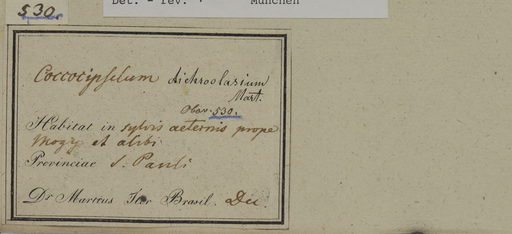 530.
Det. - rev. : München
Coccocipselum dichroolasium
Mart.
Obsv. 530.
Habitat in sylvis aeternis prope
Mogy et alibi
Provinciae S. Pauli
Dr Martius Iter Brasil. Dec.